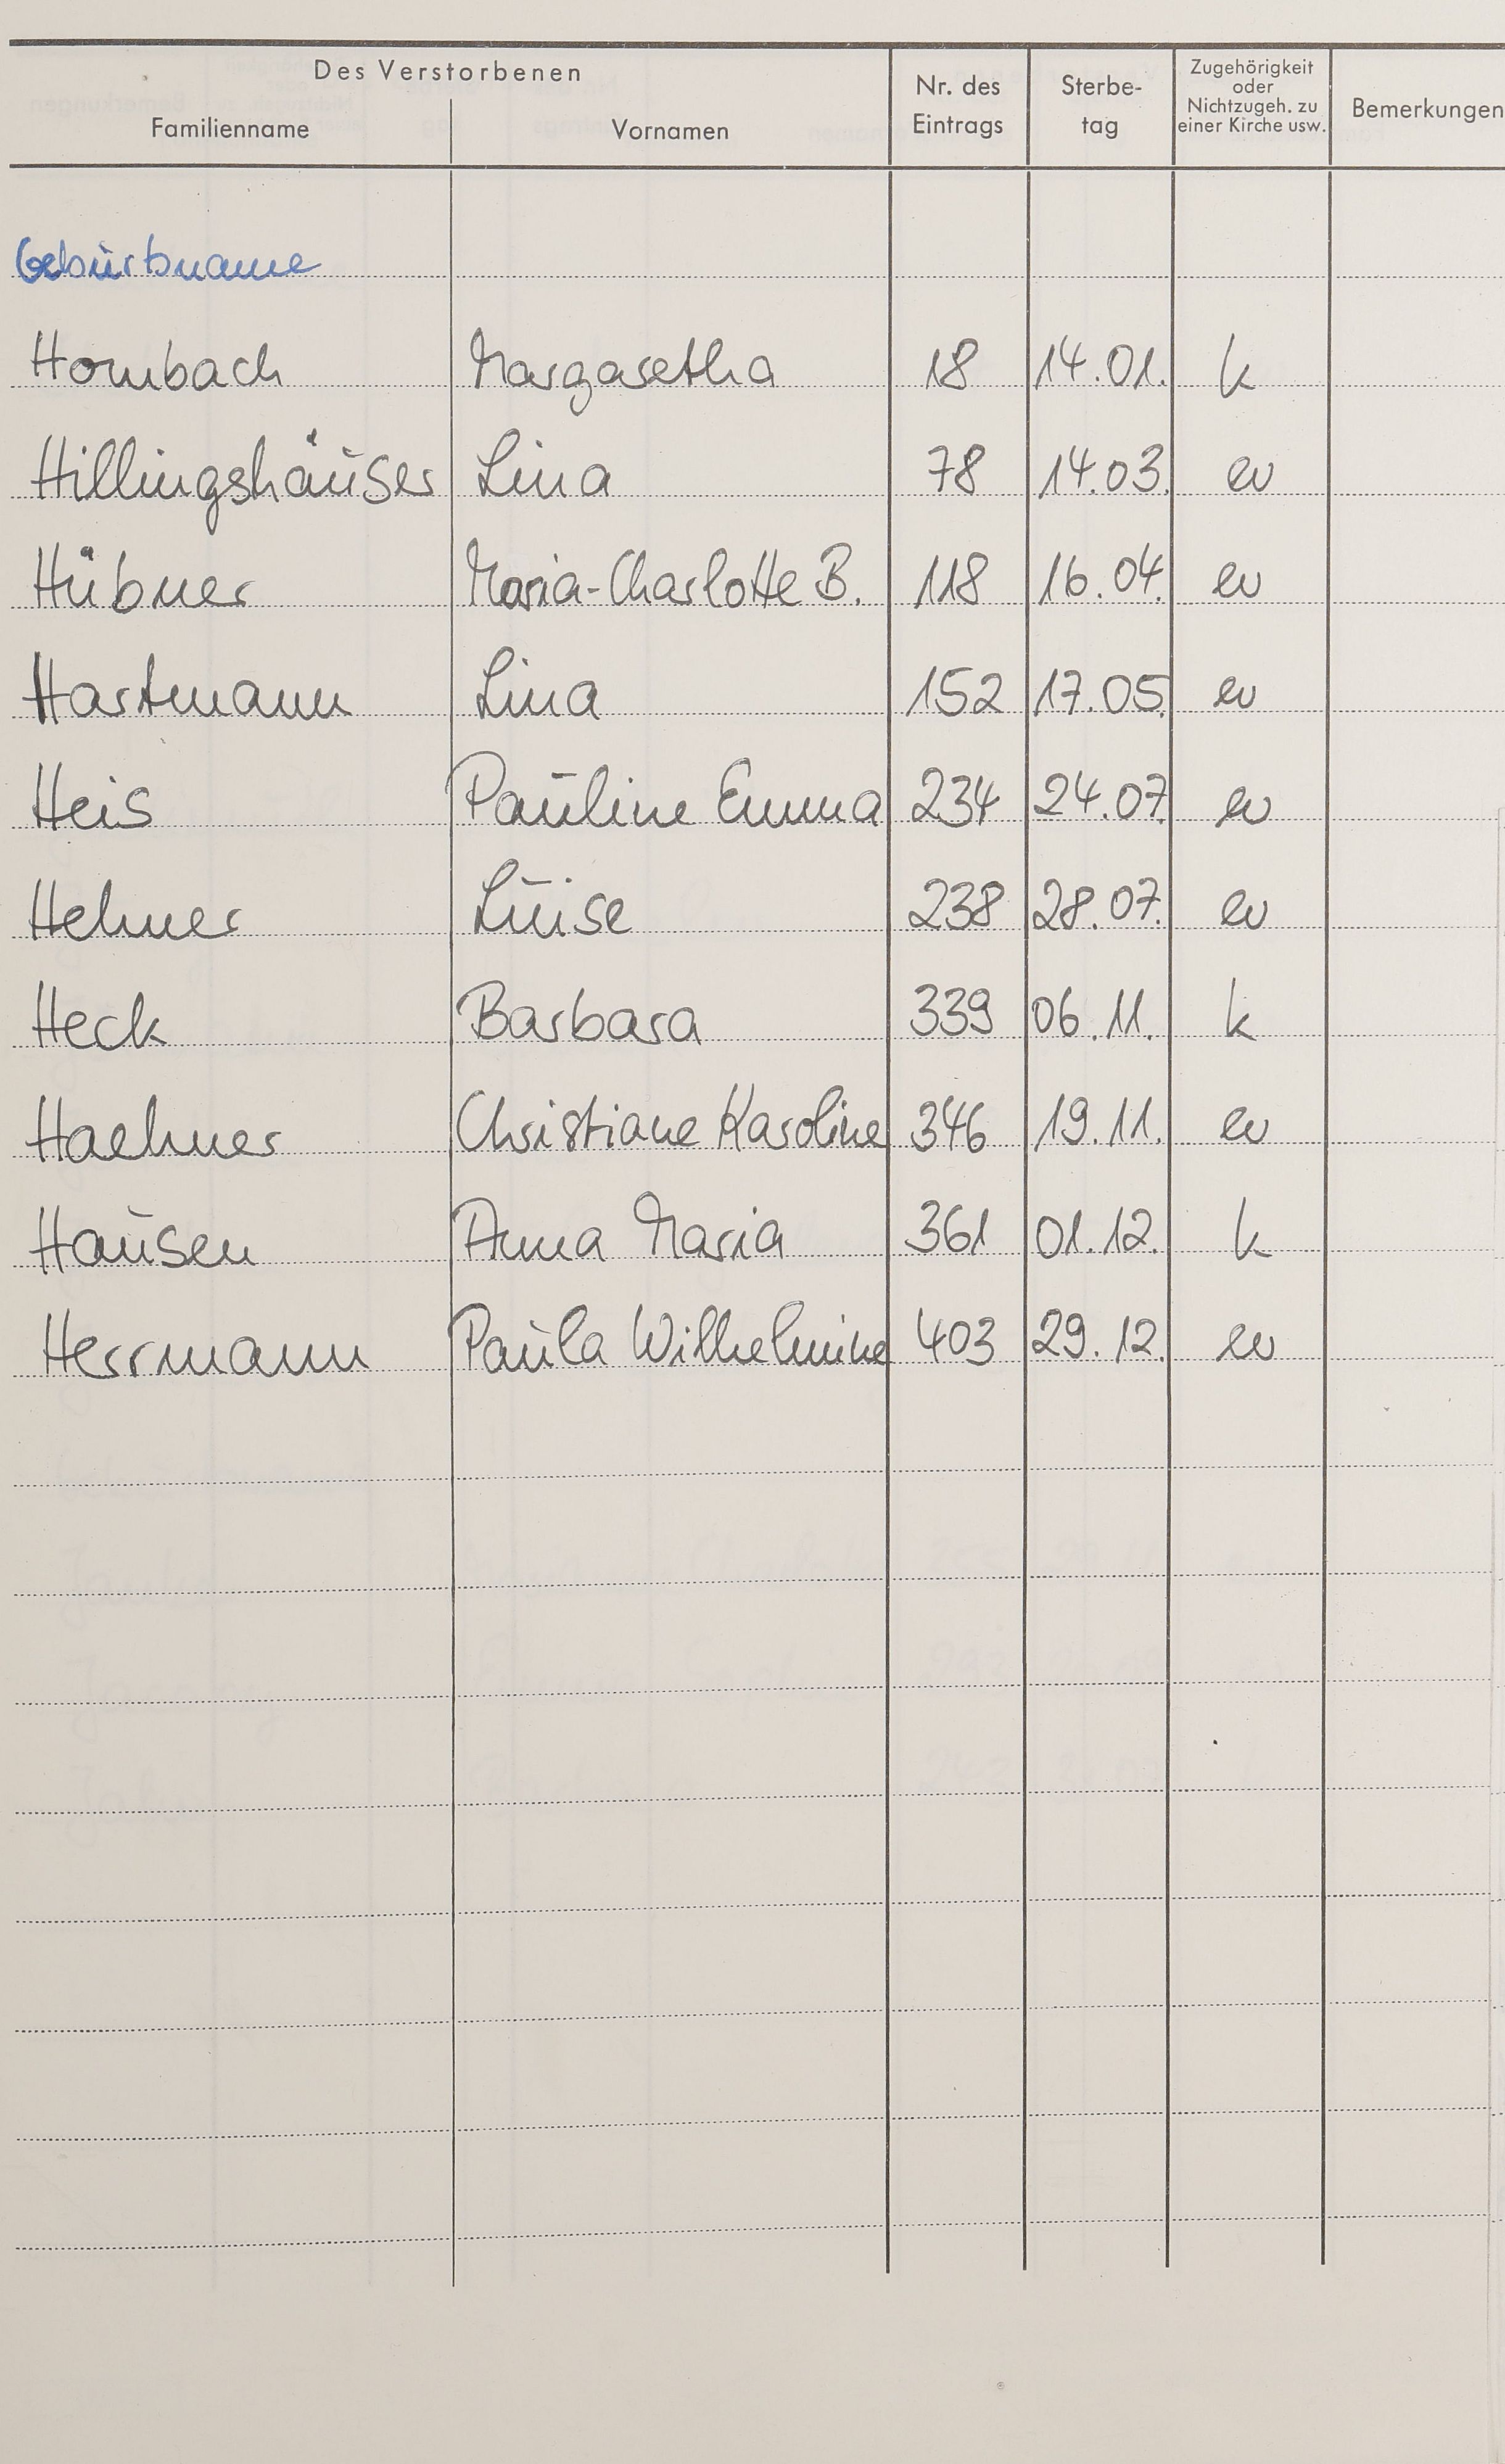 Des Verstorbenen
Familienname Vornamen Nr. des Eintrags Sterbe-tag Zugehörigkeit oder Nichtzugeh. zu einer Kirche usw. Bemerkungen
Geburtsname
Hombach Margaretha 18 14.01. k
Hillingshäuser Lina 78 14.03. ev
Hübner Maria-Charlotte B. 118 16.04. ev
Hartmann Lina 152 17.05. ev
Heis Pauline Emma 234 24.07. ev
Hehner Luise 238 28.07. ev
Heck Barbara 339 06.11. k
Haehner Christiane Karoline 346 19.11. ev
Hausen Anna Maria 361 01.12. k
Herrmann Paula Wilhelmine 403 29.12. ev